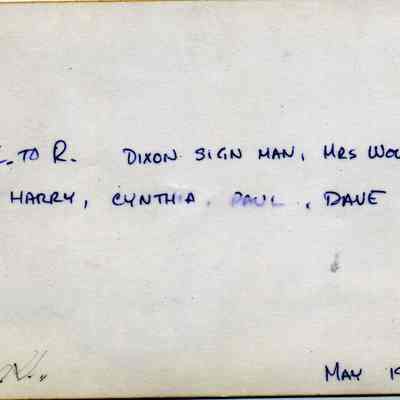 L. TO R. DIXON SIGN MAN, MRS WOU
HARRY, CYNTHIA, PAUL, DAVE
MAY 19